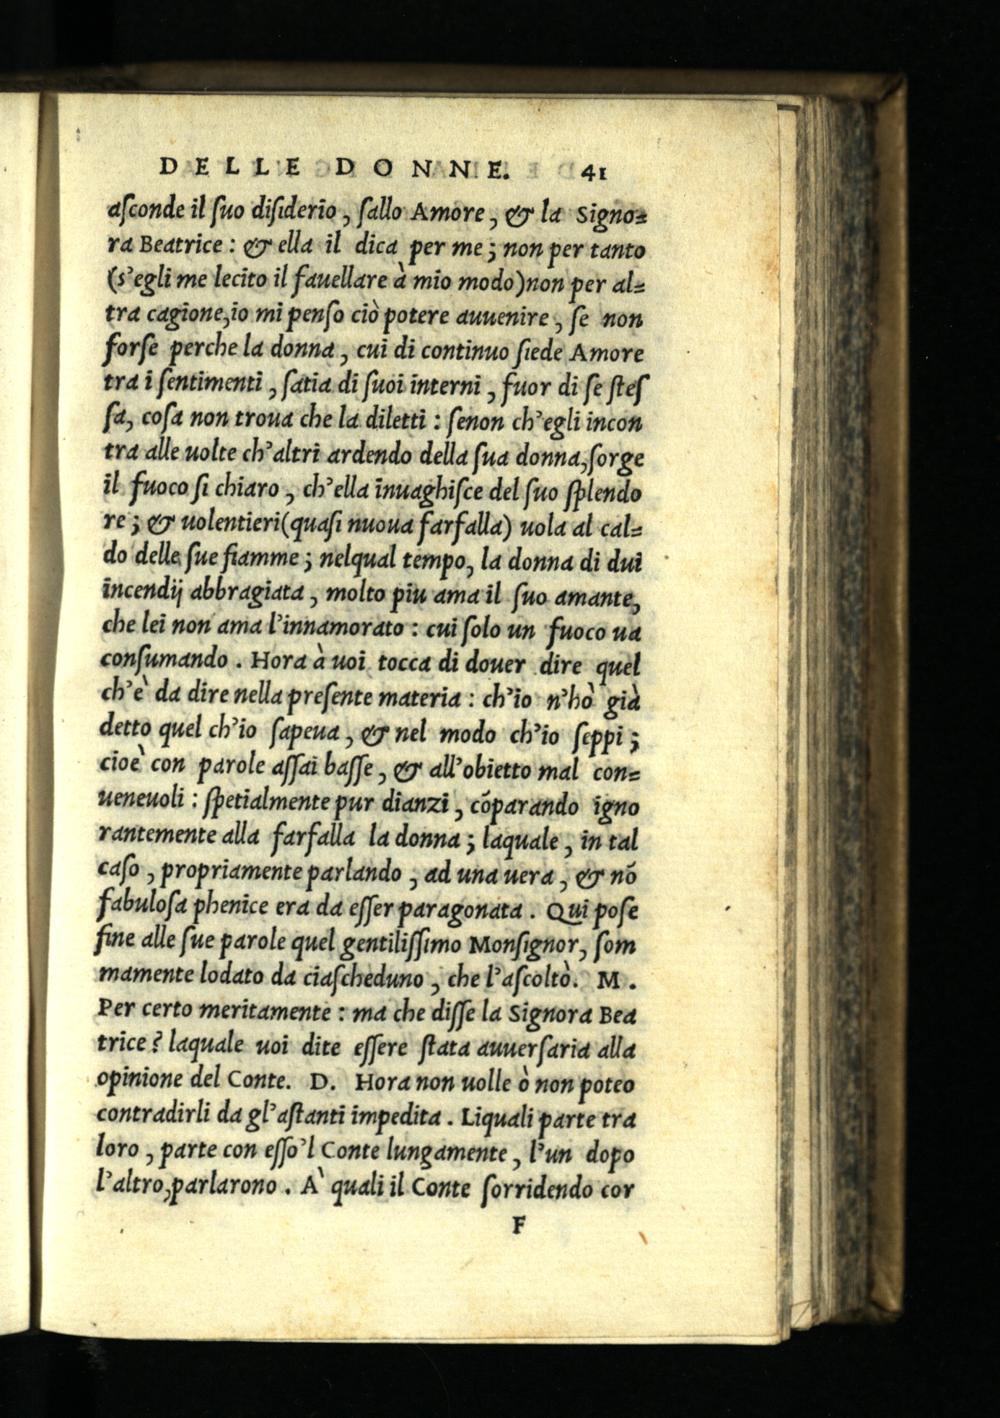 DELLE DONNE. 41
aſconde il ſuo diſiderio, ſallo Amore, & la Signo=
ra Beatrice: & ella il dica per me; non per tanto
(s'egli me lecito il fauellare à mio modo) non per al=
tra cagione, io mi penſo ciò potere auuenire, ſe non
forſe perche la donna, cui di continuo ſiede Amore
tra i ſentimenti, ſatia di ſuoi interni, fuor di ſe ſteſ
ſa, coſa non troua che la diletti: ſenon ch'egli incon
tra alle uolte ch'altri ardendo della ſua donna, ſorge
il fuoco ſi chiaro, ch'ella inuaghiſce del ſuo ſplendo
re; & uolentieri (quaſi nuoua farfalla) uola al cal=
do delle ſue fiamme; nelqual tempo, la donna di dui
incendij abbragiata, molto piu ama il ſuo amante,
che lei non ama l'innamorato: cui ſolo un fuoco ua
conſumando. Hora à uoi tocca di douer dire quel
ch'è da dire nella preſente materia: ch'io n'hò già
detto quel ch'io ſapeua, & nel modo ch'io ſeppi;
cioè con parole aſſai baſſe, & all'obietto mal con=
ueneuoli: ſpetialmente pur dianzi, cõparando igno
rantemente alla farfalla la donna; laquale, in tal
caſo, propriamente parlando, ad una uera, & nõ
fabuloſa phenice era da eſſer paragonata. Qui poſe
fine alle ſue parole quel gentiliſſimo Monſignor, ſom
mamente lodato da ciaſcheduno, che l'aſcoltò. M.
Per certo meritamente: ma che diſſe la Signora Bea
trice? laquale uoi dite eſſere ſtata auuerſaria alla
opinione del Conte. D. Hora non uolle ò non poteo
contradirli da gl'aſtanti impedita. Liquali parte tra
loro, parte con eſſo'l Conte lungamente, l'un dopo
l'altro, parlarono. À quali il Conte ſorridendo cor
F